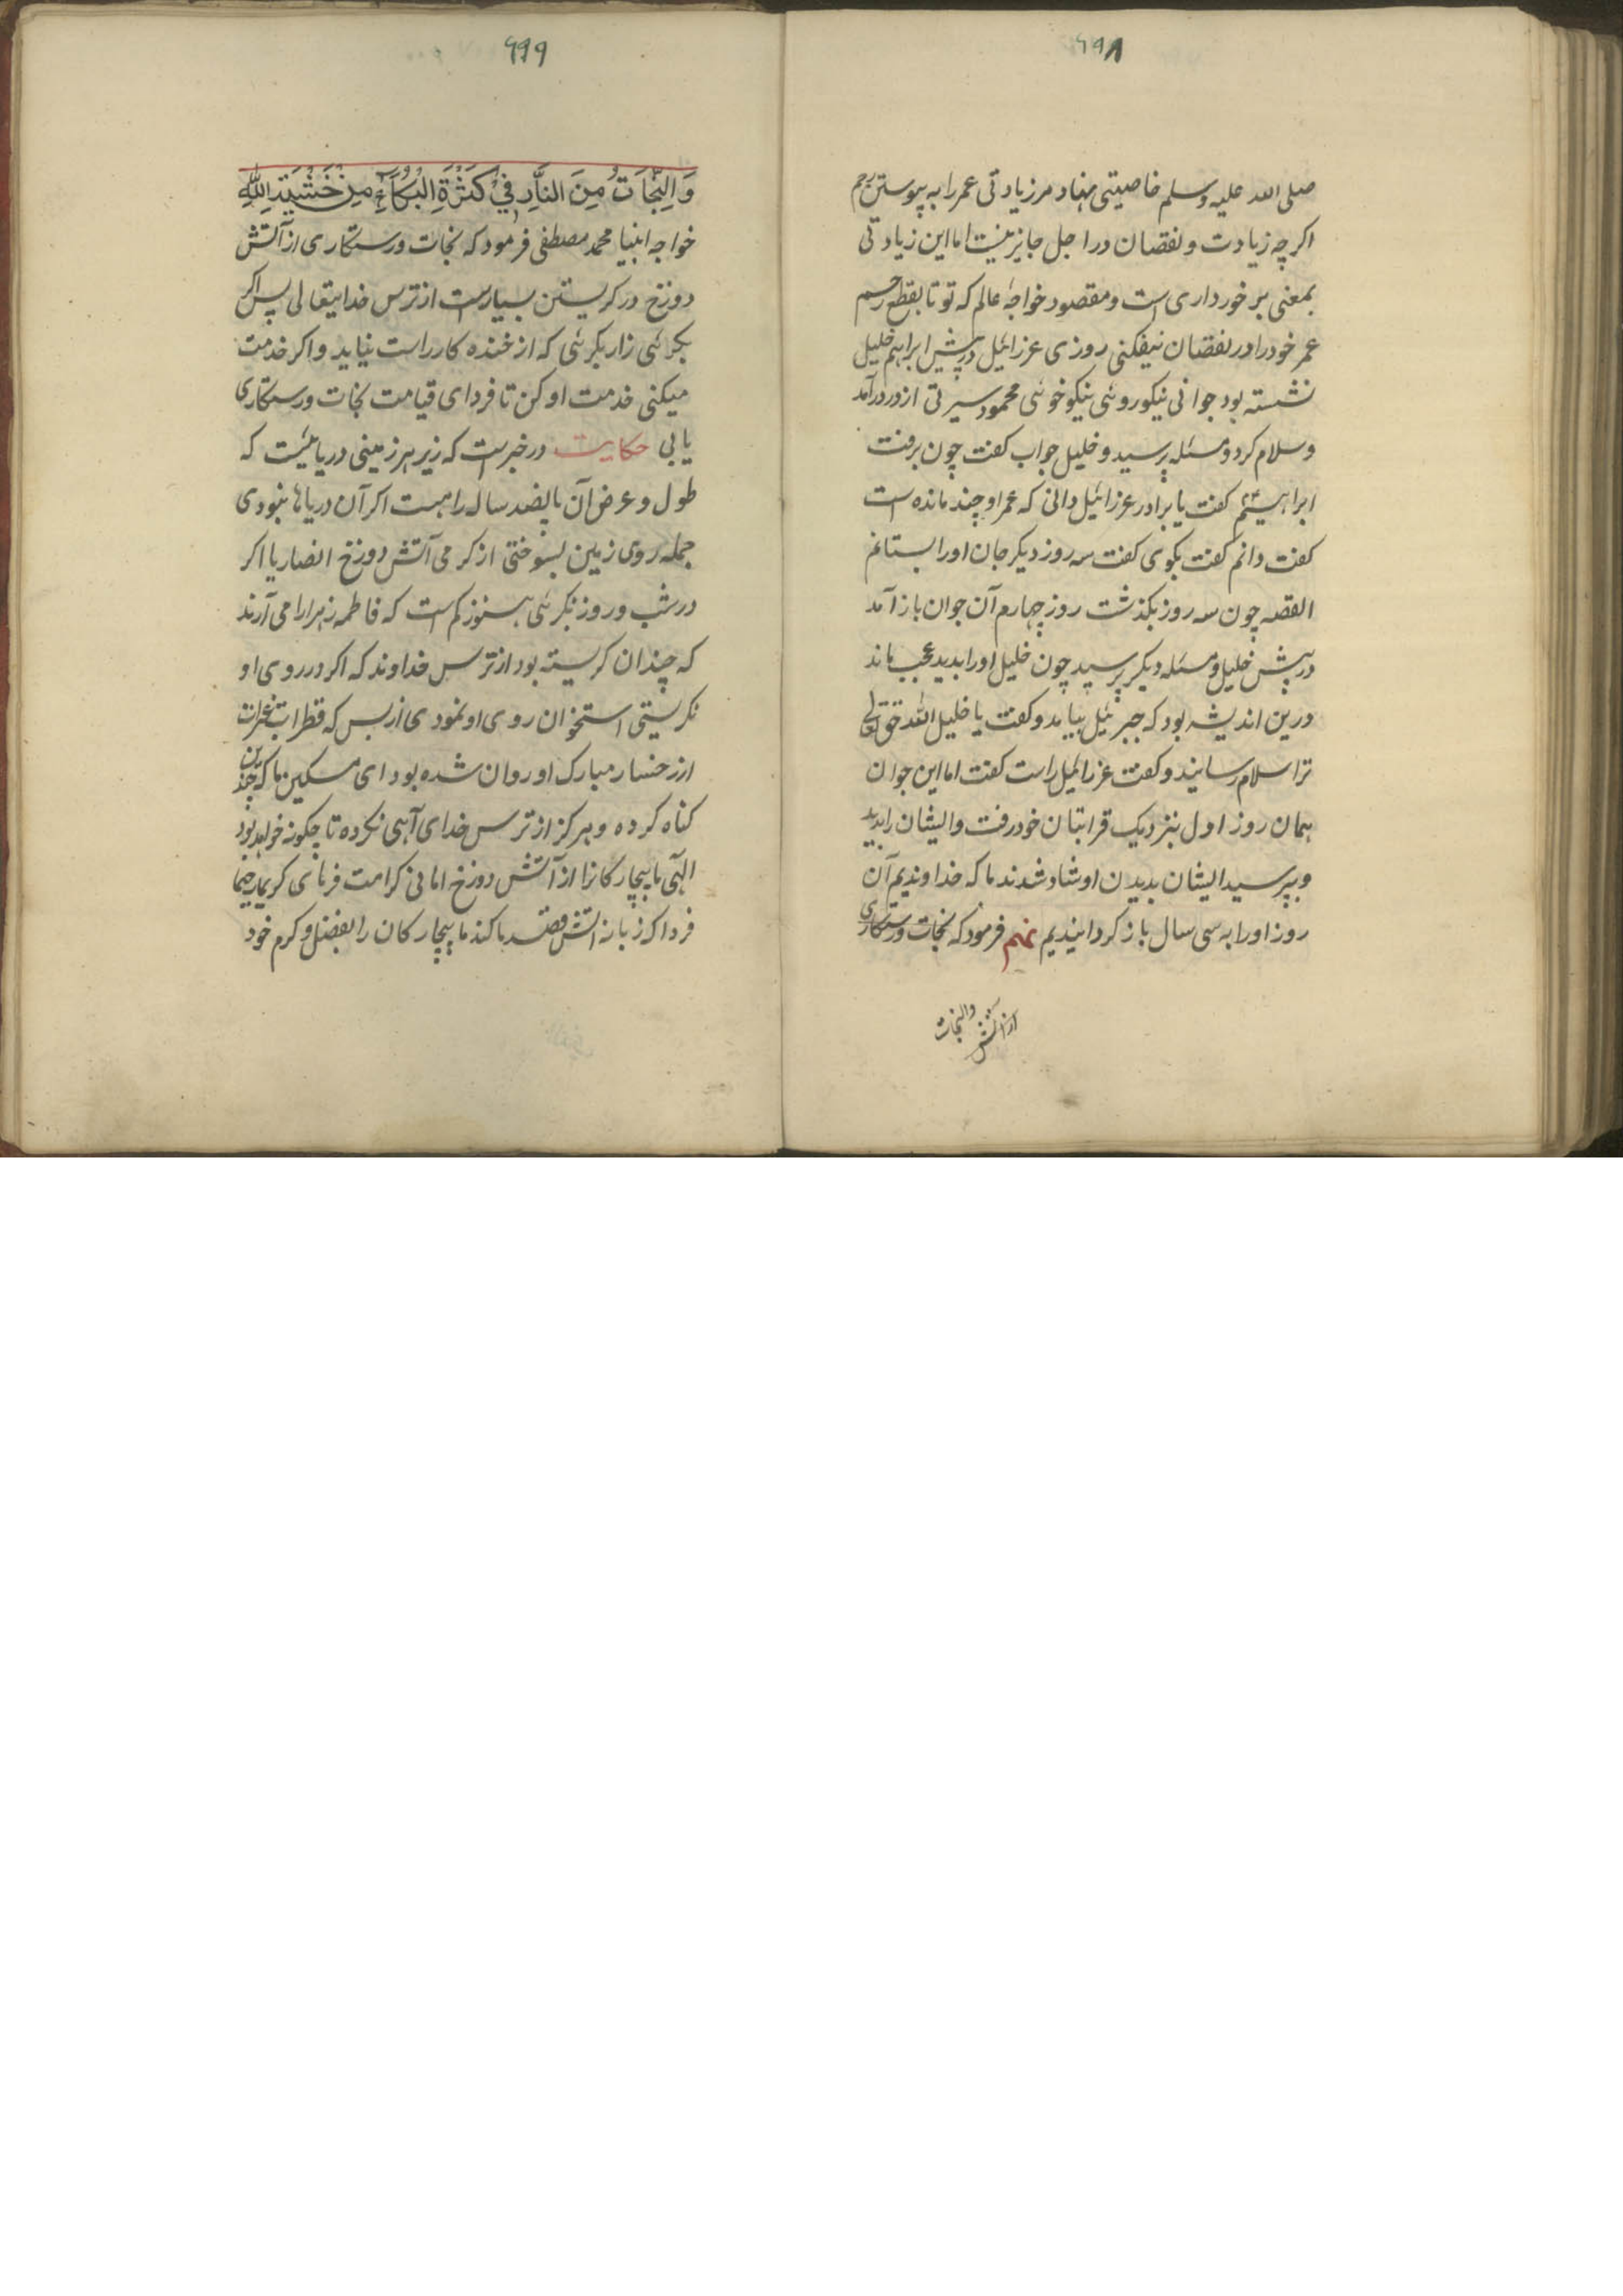 ۶۹۸
صلی الله علیه وسلم خاصیتی نهاد مر زیادتی عمر را به پیوستن رحم
اکرچه زیادت و نقصان در اجل جایز نیست اما این زیادتی
بمعنی بر خورداری است و مقصود خواجهٔ عالم که تو تا بقطع رحم
عمر خود را در نقصان نیفکنی روزی عزرائیل در پیش ابراهیم خلیل
نشسته بود جوانی نیکوروئی نیکوخوئی محمود سیرتی از در درآمد
وسلام کرد و مسئله پرسید و خلیل جواب کفت چون برفت
ابراهیم کفت یا برادر عزرائیل دانی که عمر او چند مانده است
کفت دانم کفت بکوی کفت سه روز دیکر جان او را بستانم
القصه چون سه روز بکذشت روز چهارم آن جوان باز آمد
در پیش خلیل و مسئله دیکر پرسید چون خلیل او را بدید عجب ماند
درین اندیشه بود که جبرئیل بیامد و کفت یا خلیل الله حق تعالی
ترا سلام رسانید و کفت عزرائیل راست کفت اما این جوان
همان روز اول بنزدیک قرابتان خود رفت و ایشان را بدید
و بپرسید ایشان بدیدن او شاد شدند ما که خداوندیم آن
روز او را به سی سال باز کردانیدیم نهم فرمود که نجات و رستکاری
از آتش والنجات
۶۹۹
وَالنِّجَاتُ مِنَ النَّارِ فِيْ كَثْرَةِ الْبُكَآءِ مِنْ خَشْيَةِ اللّٰهِ
خواجه انبیا محمد مصطفی فرمود که نجات و رستکاری از آتش
دوزخ در کریستن بسیارست از ترس خدایتعالی پس اکر
بکرئی زار بکرئی که از خنده کار راست نیاید و اکر خدمت
میکنی خدمت او کن تا فردای قیامت نجات و رستکاری
یابی حکایت در خبرست که زیر هر زمینی دریائیست که
طول و عرض آن پانصد ساله راهست اکر آن دریاها نبودی
جمله روی زمین بسوختی از کرمی آتش دوزخ انصار یا اکر
در شب و روز بکرئی هنوز کم است که فاطمه زهرا را می آرند
که چندان کریسته بود از ترس خداوند که اکر در روی او
نکریستی استخوان روی او نمودی از بس که قطرات عبرات
از رخسار مبارک او روان شده بود ای مسکین ما که چندین
کناه کرده و هرکز از ترس خدای آهی نکرده تا چکونه خواهد بود
الهی ما بیچارکانرا از آتش دوزخ امانی کرامت فرمای کریما رحیما
فردا که زبانه آتش قصد ما کند ما بیچارکان را بفضل و کرم خود